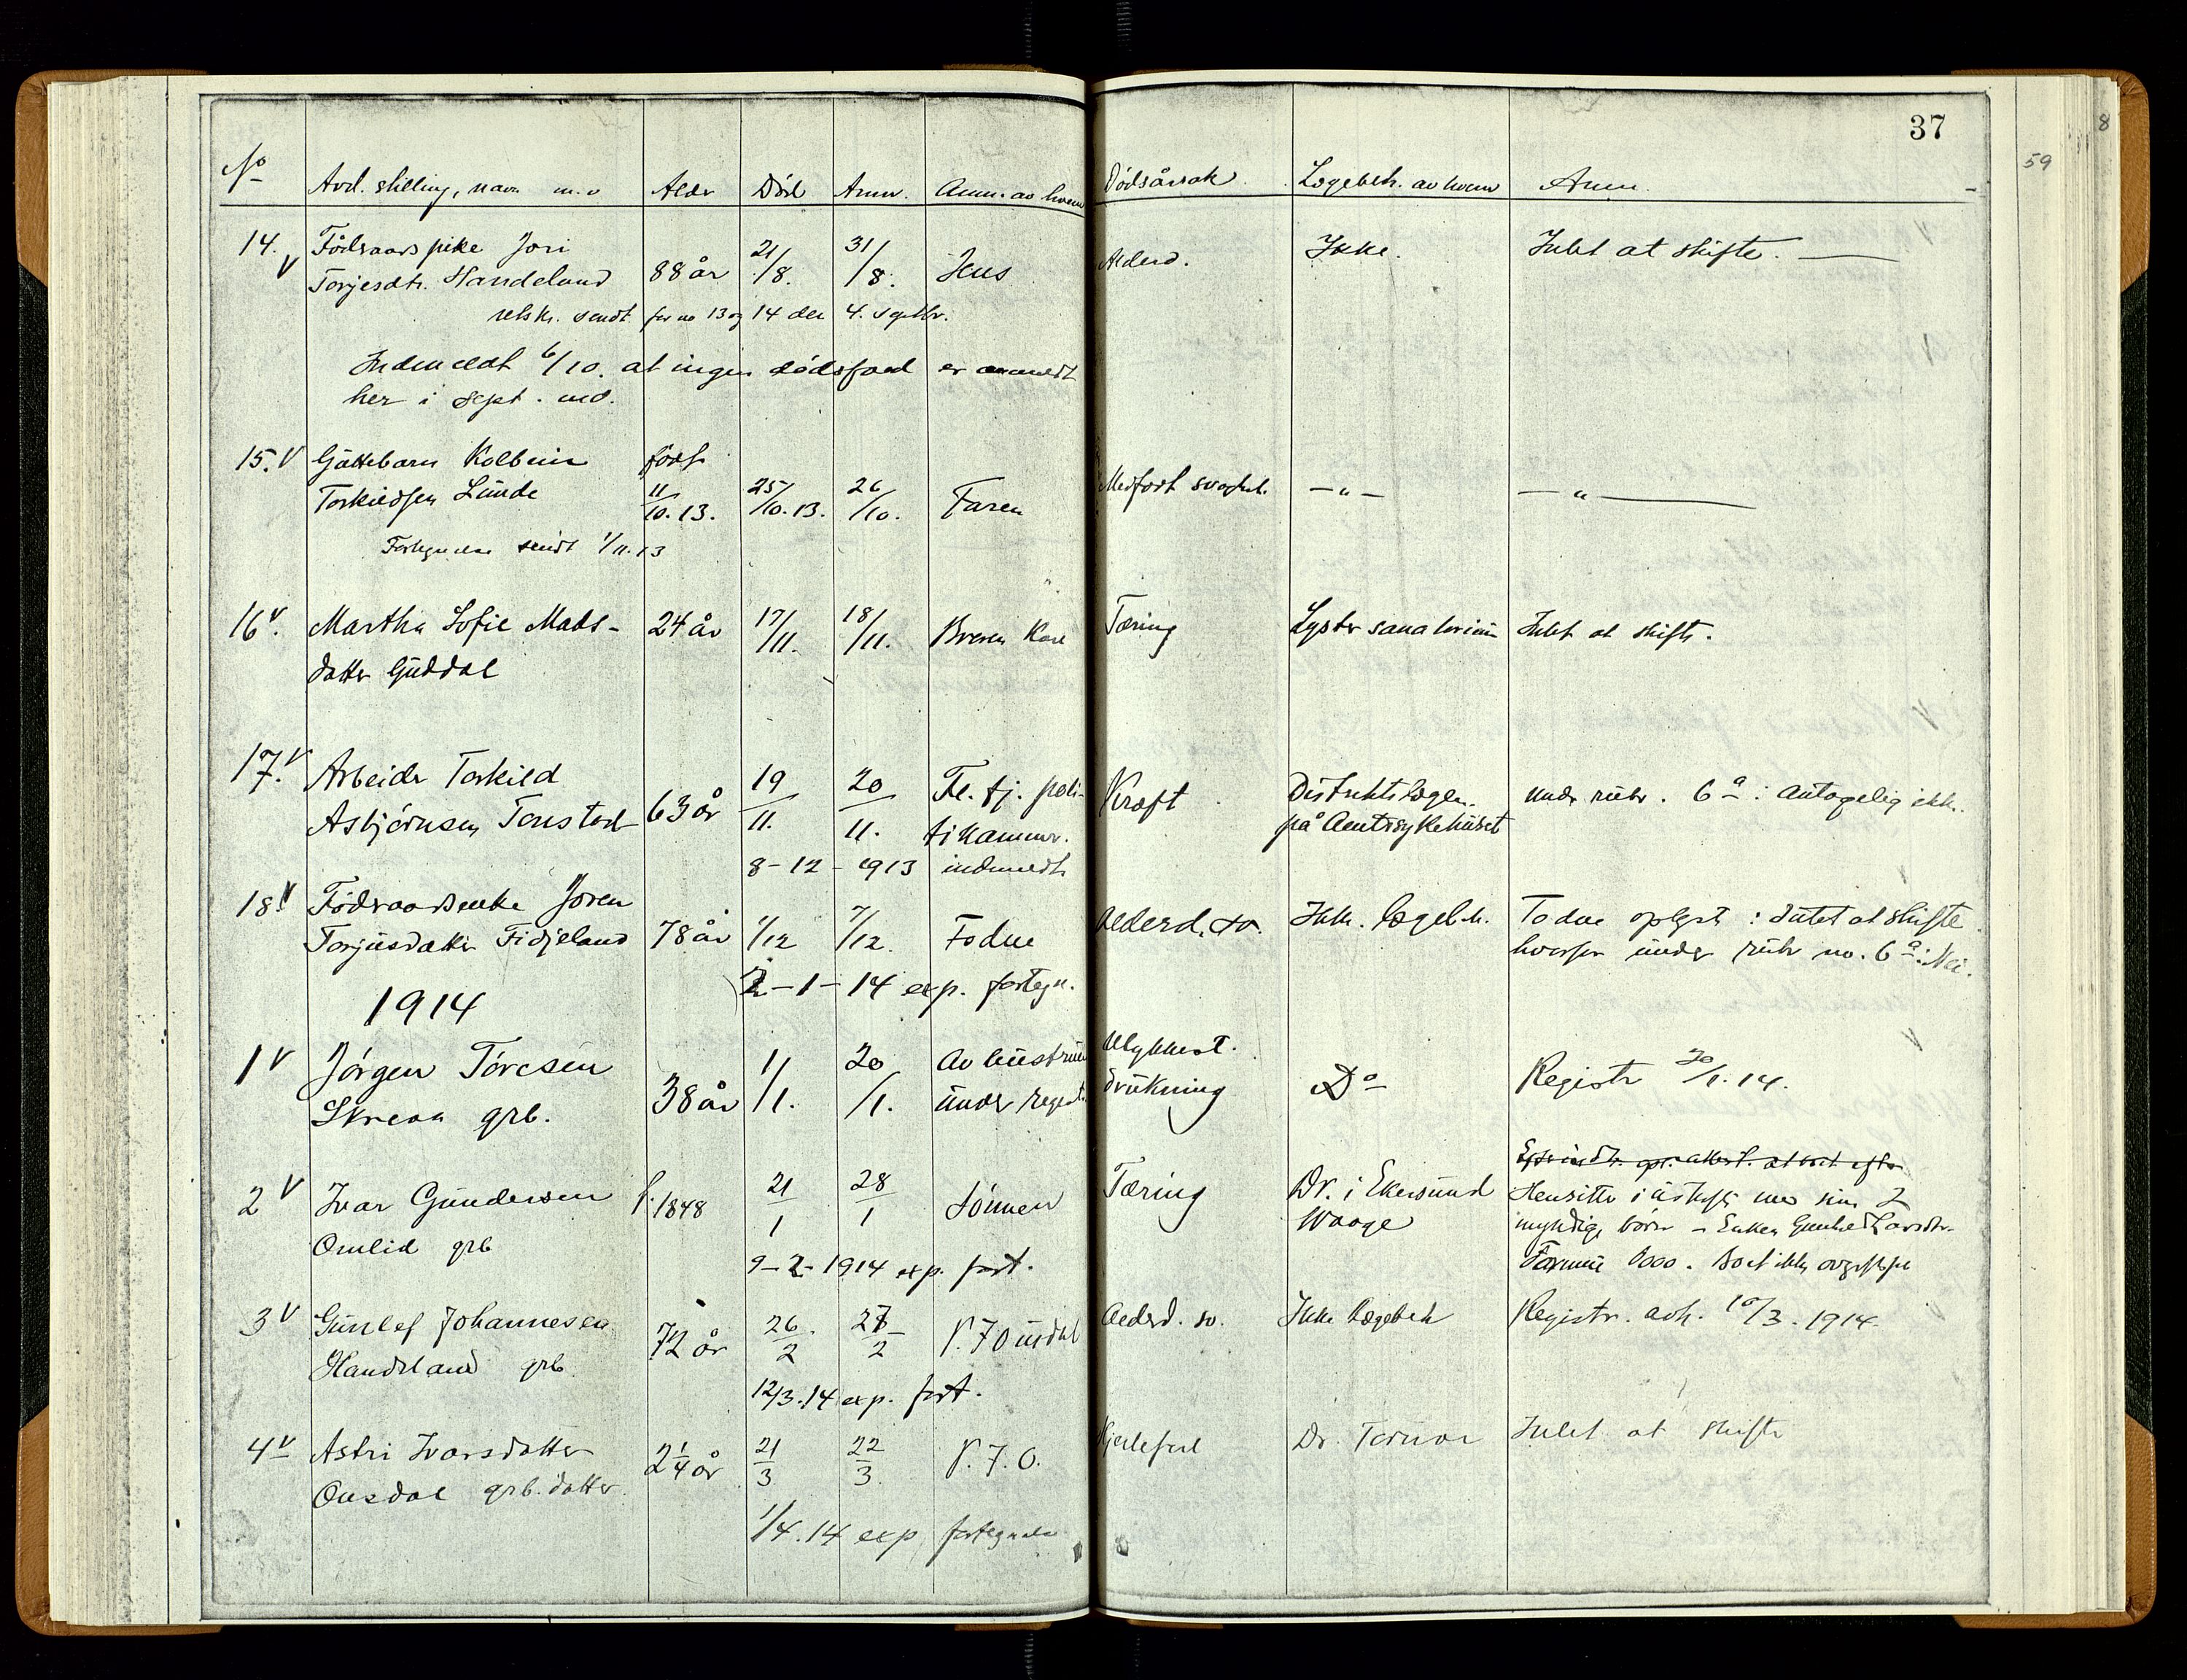 37
59
8
No Avd. stilling, navn m.v Alder Död Anm. Anm. av hvem Dödsårsak Lægebeh. av hvem Anm.
14. V Födraadspike Jori
Torjesdtr. Handeland 88 år 21/8. 31/8. Jens Alderd. Ikke. Intet at skifte.
sendt for no 13 og 14 den 4. septbr.
Indmeldt 6/10. at ingen dödsfald er anmeldt
her i sept. md.
15. V Gjöttebarn Kolbein født
Torkildsen Lunde 11/10.13. 25/10.13. 26/10. Faren Medfødt svaghet. — " — — " —
Fortegnelse sendt 1/11.13
16 V. Martha Sofie Mads-
datter Guddal 24 år 17/11. 18/11. Broren Karl Tæring Lyster sanatorium Intet at skifte.
17. V Arbeider Torkild
Asbjörnsen Tonstad 63 år 19/11. 20/11. Tel. fj. poli-
tikammer. Kræft Distriktslægen
på Amtssykehuset under rubr. 6a: Antagelig ikke.
8-12-1913 indmeldt
18. V Födraadsenke Joren
Torjusdatter Fidjeland 78 år 1/12 7/12. Todne Alderd. sv. Ikke lægebeh. Todne oplyste: Intet at skifte.
hvorfor under rubr no. 6a: Nei.
2-1-14 exp. fortegn.
1914
1 V Jörgen Töresen
Skreaa grb. 38 år 1/1. 20/1. Av hustruen
under regist. Ulykkest.
drukning Do Registr 20/1.14.
2 V Ivar Gundersen
Omlid grb f. 1848 21/1 28/1 Sönnen Tæring Dr. i Ekersund
Waage
Hensitter i uskifte med sine 2
myndige börn - Enken Gunhild Larsdtr.
Formue 1000. Boet ikke
9-2-1914 exp. fort.
3 V Gunlef Johannesen
Handeland grb. 72 år 26/2 27/2 P. J. Ousdal Alderd. sv. Ikke lægebeh Registr. avh. 10/3. 1914.
12/3.14 exp. fort.
4 V Astri Ivarsdatter
Ousdal grb. datter 2 1/4 år 21/3 22/3. P. J. O. Hjertefeil Dr. Intet at skifte
1/4.14 exp fortegnelse